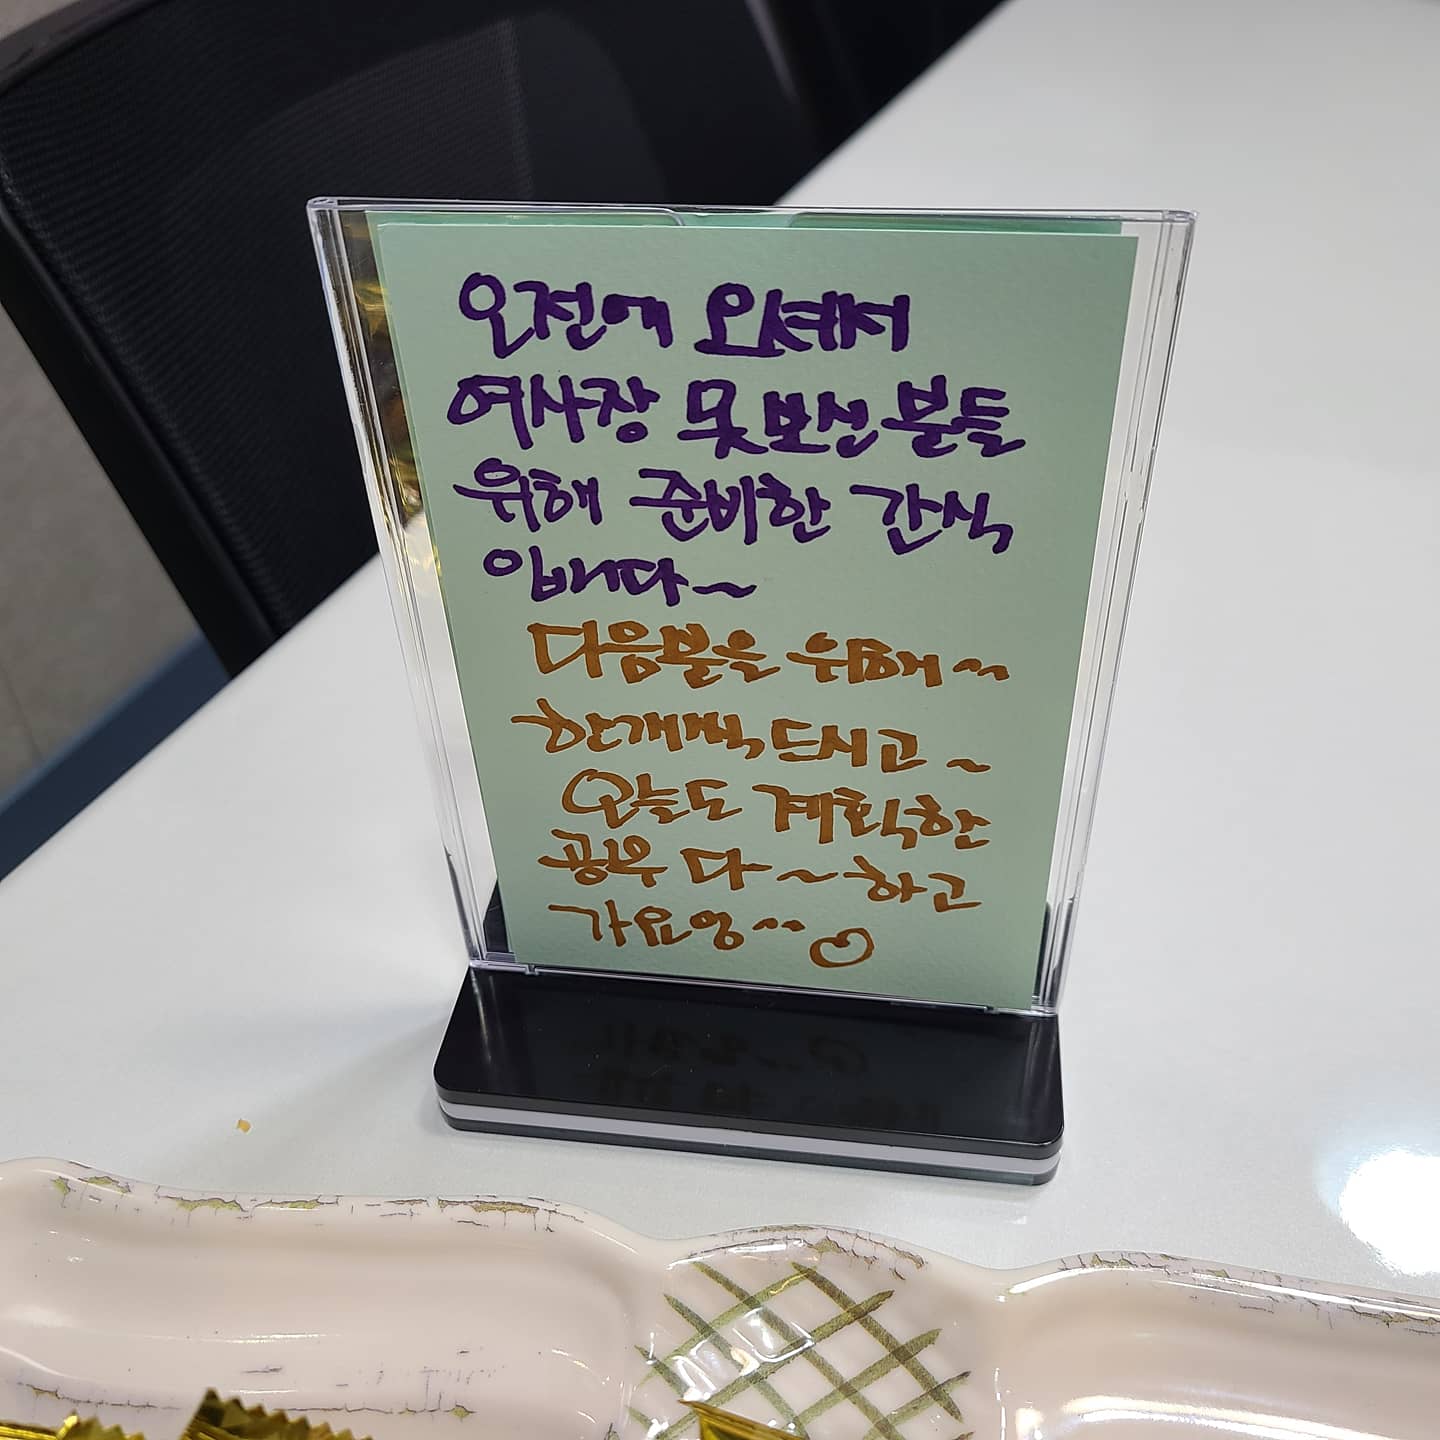 오전에 오셔서
여사장 못보신분들
위해 준비한 간식
입니다~
다음분을 위해^^
한개씩드시고~
오늘도 계획한
공부 다~하고
가요엉^^♡